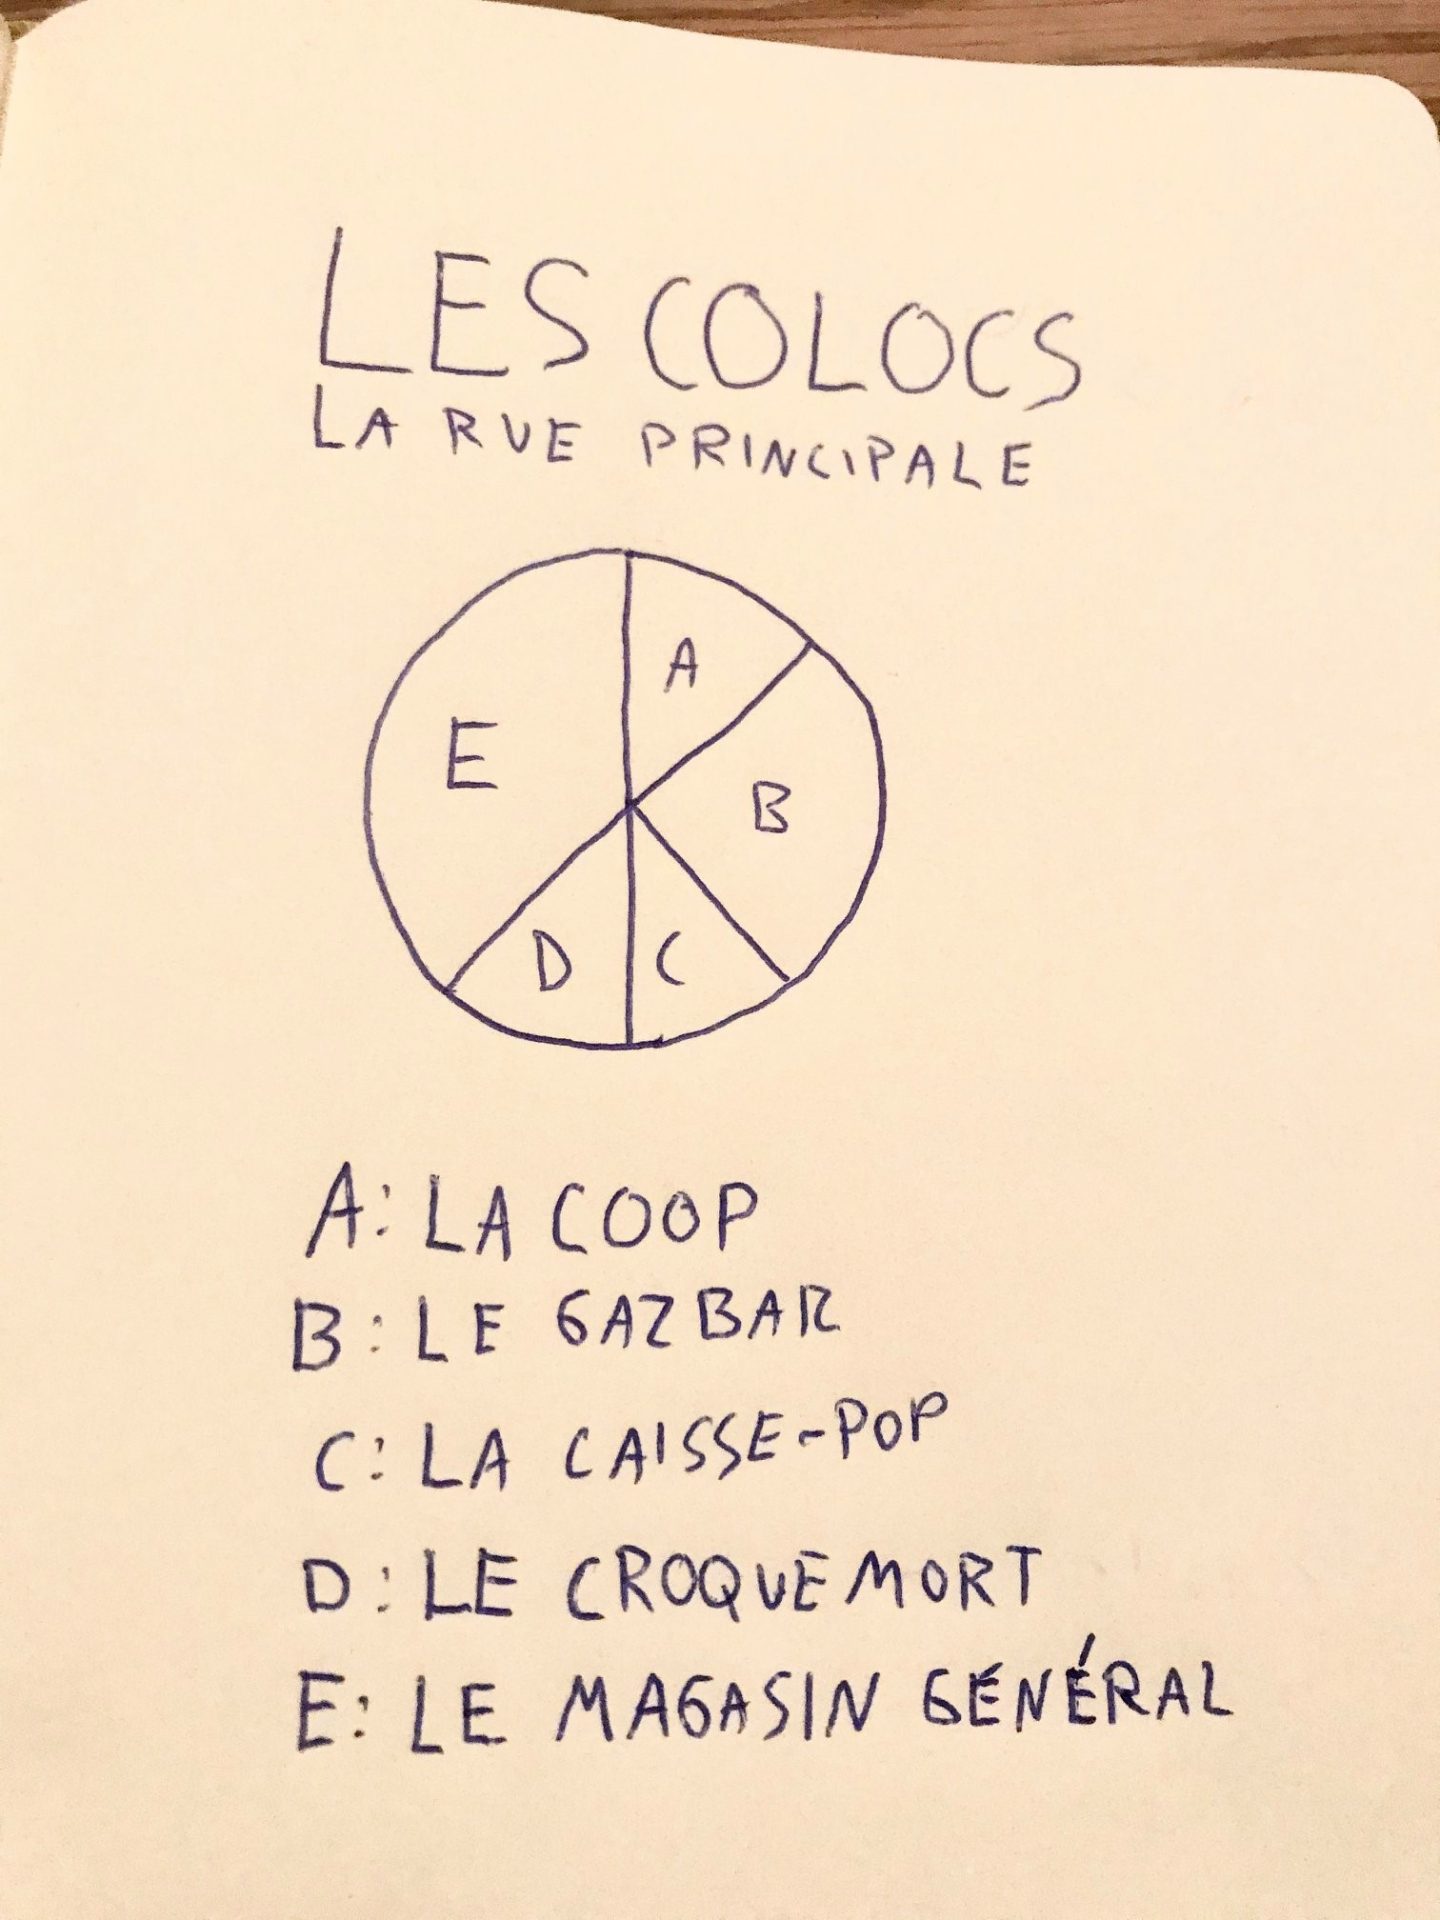 LES COLOCS
LA RUE PRINCIPALE
A
E
B
D C
A: LA COOP
B: LE GAZBAR
C: LA CAISSE-POP
D: LE CROQUE MORT
E: LE MAGASIN GÉNÉRAL